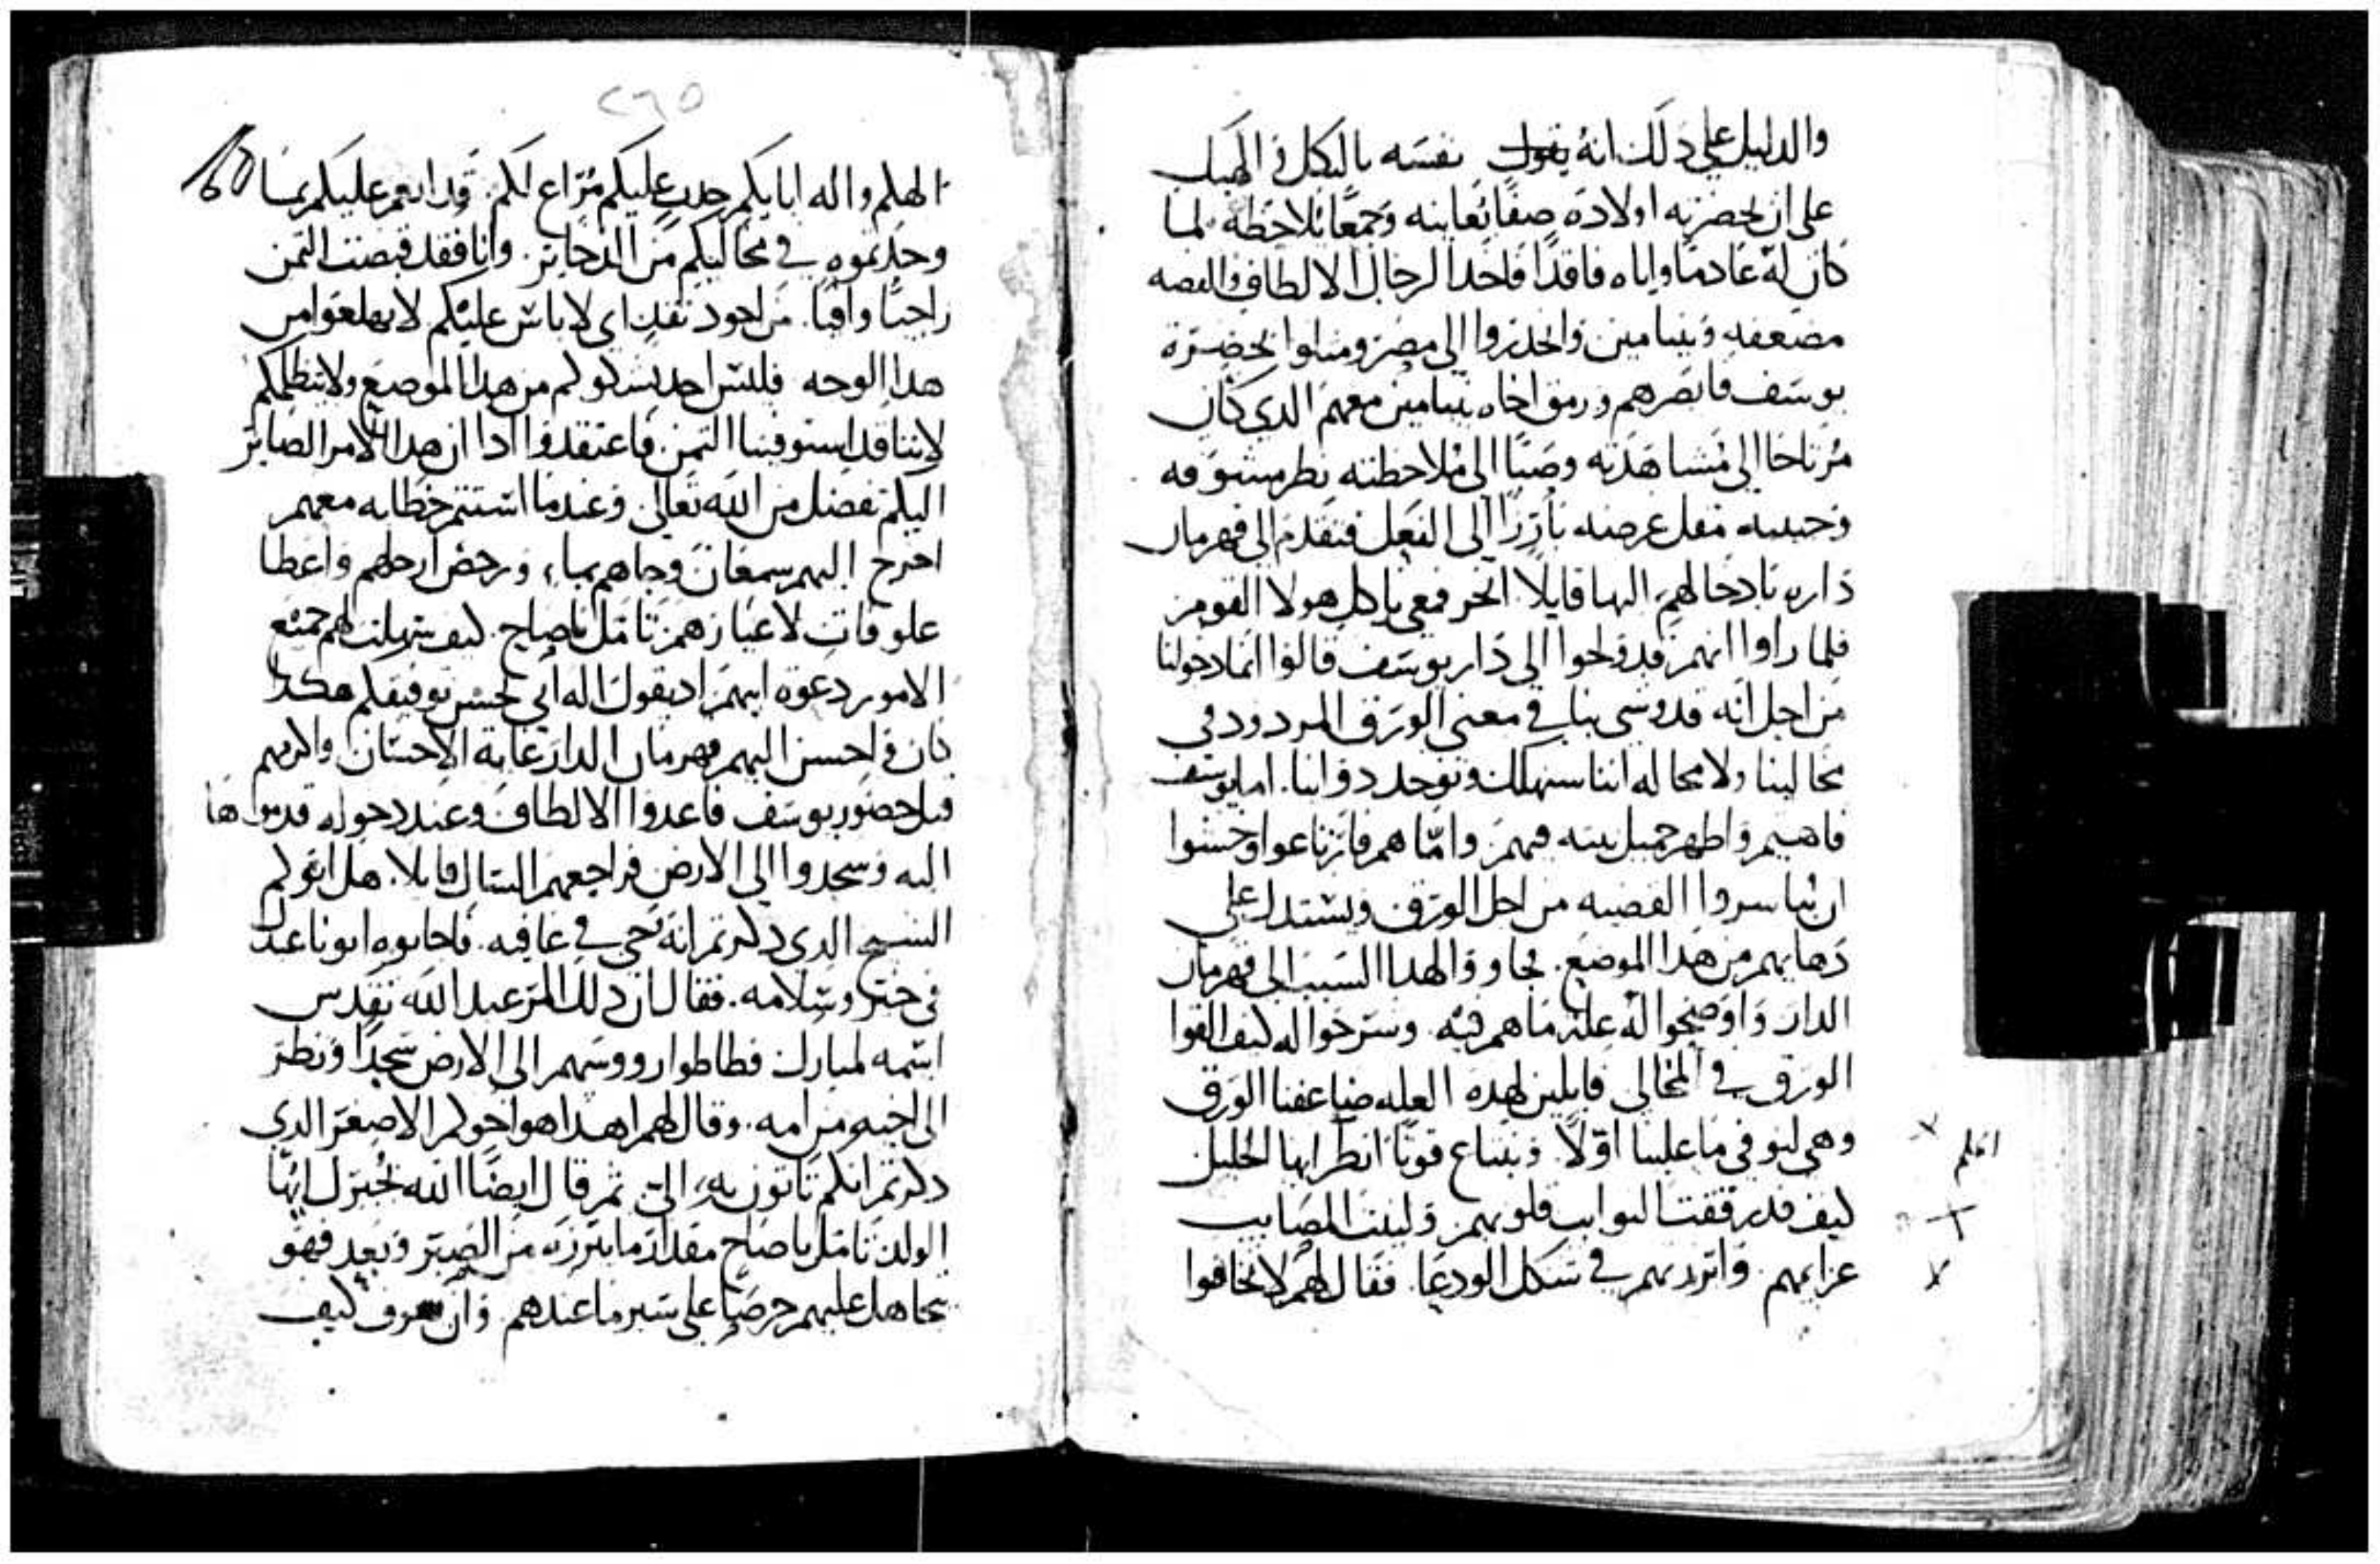 والدليل علي ذلك انه يقول نفسه بالتكل في الهيكل
علي ان يحضر به اولاده صفًا تعاينه وجمعًا تلاحظه لما
كان له عادمًا واياه فاقدًا فاخدا لرجال الالطاف والفضه
مضعفه وبنيامين وانحدروا الي مصر ومثلوا بحضرة
يوسف فابصرهم ورمق اخاه بنيامين معهم الدي كان
مرتاحا الي مشاهدته وصبًا الي ملاحظته نظر مشوقه
وحبيبه فقل عرضه بارزًا الي الفعل فتقدم الي قهرمان
داره بادخالهم اليها قايلا انحر فمعي ياكل هولا القوم
فلما راوا انهم قد ولجوا الي دار يوسف قالوا انما دخولنا
من اجل انه قد وشي بنا في معني الورق المردود في
مخالينا ولا محاله اننا سنهلك وتوخد دوابنا. اما يوسف
فاهتم واظهر جميل نيته فيهم واما هم فارتاعوا وخشوا
ان يباشروا القضيه من اجل الورق ويستدل علي
دهابهم من هدا الموضع. فجاووا لهدا السبب الي قهرمان
الدار واوضحوا له علة ما هم فيه. وشرحوا له كيف الفوا
الورق في المخالي قايلين لهده العله ضاعفنا الورق
وهي لنوفي ما علينا اوّلاً. ونبتاع قوتًا انظر ايها الخليل
كيف قد رققت النوايب قلوبهم ولينت المصايب
عزايمهم. واتزرتهم في شكل الودعا. فقال لهم لا تخافوا
٢٦٥
الهكم واله ابايكم حدب عليكم مُرَاع لكم. قد انعم عليكم بما
وجدتموه في مخاليكم من الدخاير. وانا فقد قبضت التمن
راجيًا وافيًا. من اجود نقد اي لا باس عليكم لا تهلعوا من
هدا الوجه فليس احد يشكوكم من هدا الموضع ولا يتظلمكم
لاننا قد استوفينا التمن. فاعتقدوا ادا ان هدا الامر الصاير
اليكم تفضل من الله تعالي. وعندما استتم خطابه معهم
اخرج اليهم سمعان وجاهم بماء، ورحض ارجلهم واعطا
علوفات لاعيارهم تامل ياصاح. كيف سهلت لهم جميع
الامور دعوة ابيهم اد يقول اله ابي يحسن توفيقكم هكدا
كان فاحسن اليهم قهرمان الدار غاية الاحسان واكرمهم
قبل حضور يوسف فاعدوا الالطاف وعند دخوله قدموها
اليه وسجدوا الي الارض فراجعهم السال قايلا. هل ابوكم
الشيخ الدي دكرتم انه حي في عافيه. فاجابوه ابونا عبدك
في خير وسلامه. فقال ان دلك المر عبد الله تقدس
اسمه لمبارك فطاطوا رووسهم الي الارض سجدًا ونظر
الي اخيه من امه. وقال لهم اهدا هو اخوكم الاصغر الدي
دكرتم انكم تاتون به، الي ثم قال ايضًا الله يخير لك ايها
الولد تامل ياصاح مقدار ما ابرزه من الصبر وبعد فهو
يتجاهل عليهم حرصًا علي سبر ما عندهم وان يعرف كيف